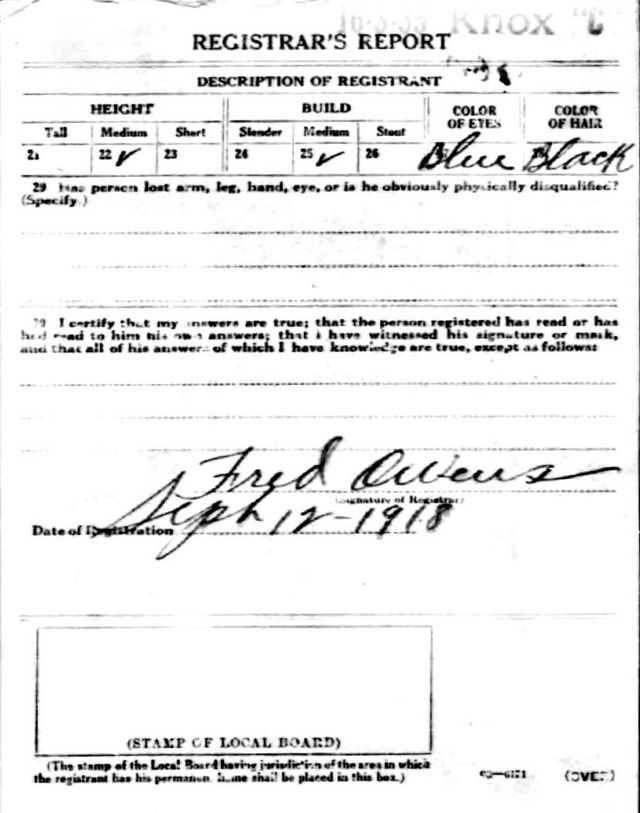 Knox "C"
REGISTRAR'S REPORT
DESCRIPTION OF REGISTRANT
HEIGHT BUILD COLOR OF EYES COLOR OF HAIR
Tall Medium Short Slender Medium Stout
21 22 ✓ 23 24 25 ✓ 26 Blue Black
29 Has person lost arm, leg, hand, eye, or is he obviously physically disqualified?
(Specify.)
30 I certify that my answers are true; that the person registered has read or has
had read to him his own answers; that I have witnessed his signature or mark,
and that all of his answers of which I have knowledge are true, except as follows:
Fred Owens
(Signature of Registrar)
Date of Registration Sept 12-1918
(STAMP OF LOCAL BOARD)
(The stamp of the Local Board having jurisdiction of the area in which
the registrant has his permanent home shall be placed in this box.)
(OVER)